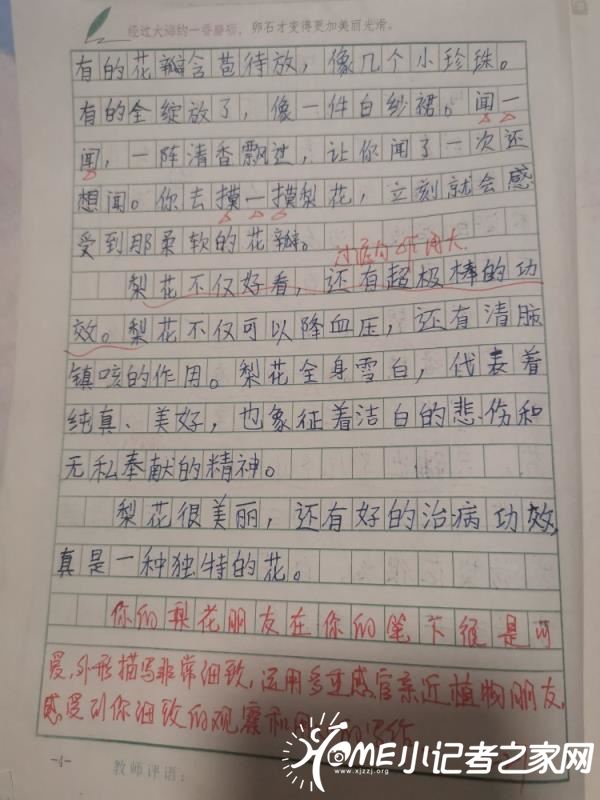 经过大海的一番磨砺，卵石才变得更加美丽光滑。
有的花瓣含苞待放，像几个小珍珠。
有的全绽放了，像一件白纱裙。闻一
闻，一阵清香飘过，让你闻了一次还
想闻。你去摸一摸梨花，立刻就会感
受到那柔软的花瓣。
过渡句 作用大
梨花不仅好看，还有超极棒的功
效。梨花不仅可以降血压，还有清肺
镇咳的作用。梨花全身雪白，代表着
纯真、美好，也象征着洁白的悲伤和
无私奉献的精神。
梨花很美丽，还有好的治病功效，
真是一种独特的花。
你的梨花朋友在你的笔下很是可
爱，外形描写非常细致，运用多重感官亲近植物朋友，
感受到你细致的观察和 的写作
-4-
教师评语：
HOME小记者之家网
www.xjzzj.org